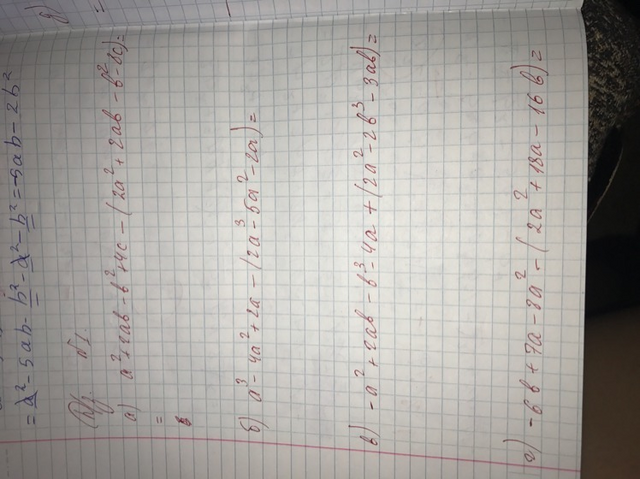 = a² - 5ab - b² - a² - b² = -5ab - 2b²
д)
№1
а) a² + 2ab - b² + 4c - (2a² + 2ab - b² - 8c) =
=
б) a³ - 4a² + 2a - (2a³ - 5a² - 2a) =
в) -a² + 2ab - b³ - 4a + (2a² - 2b³ - 3ab) =
г) -6b + 7a - 8a² - (2a² + 18a - 16b) =